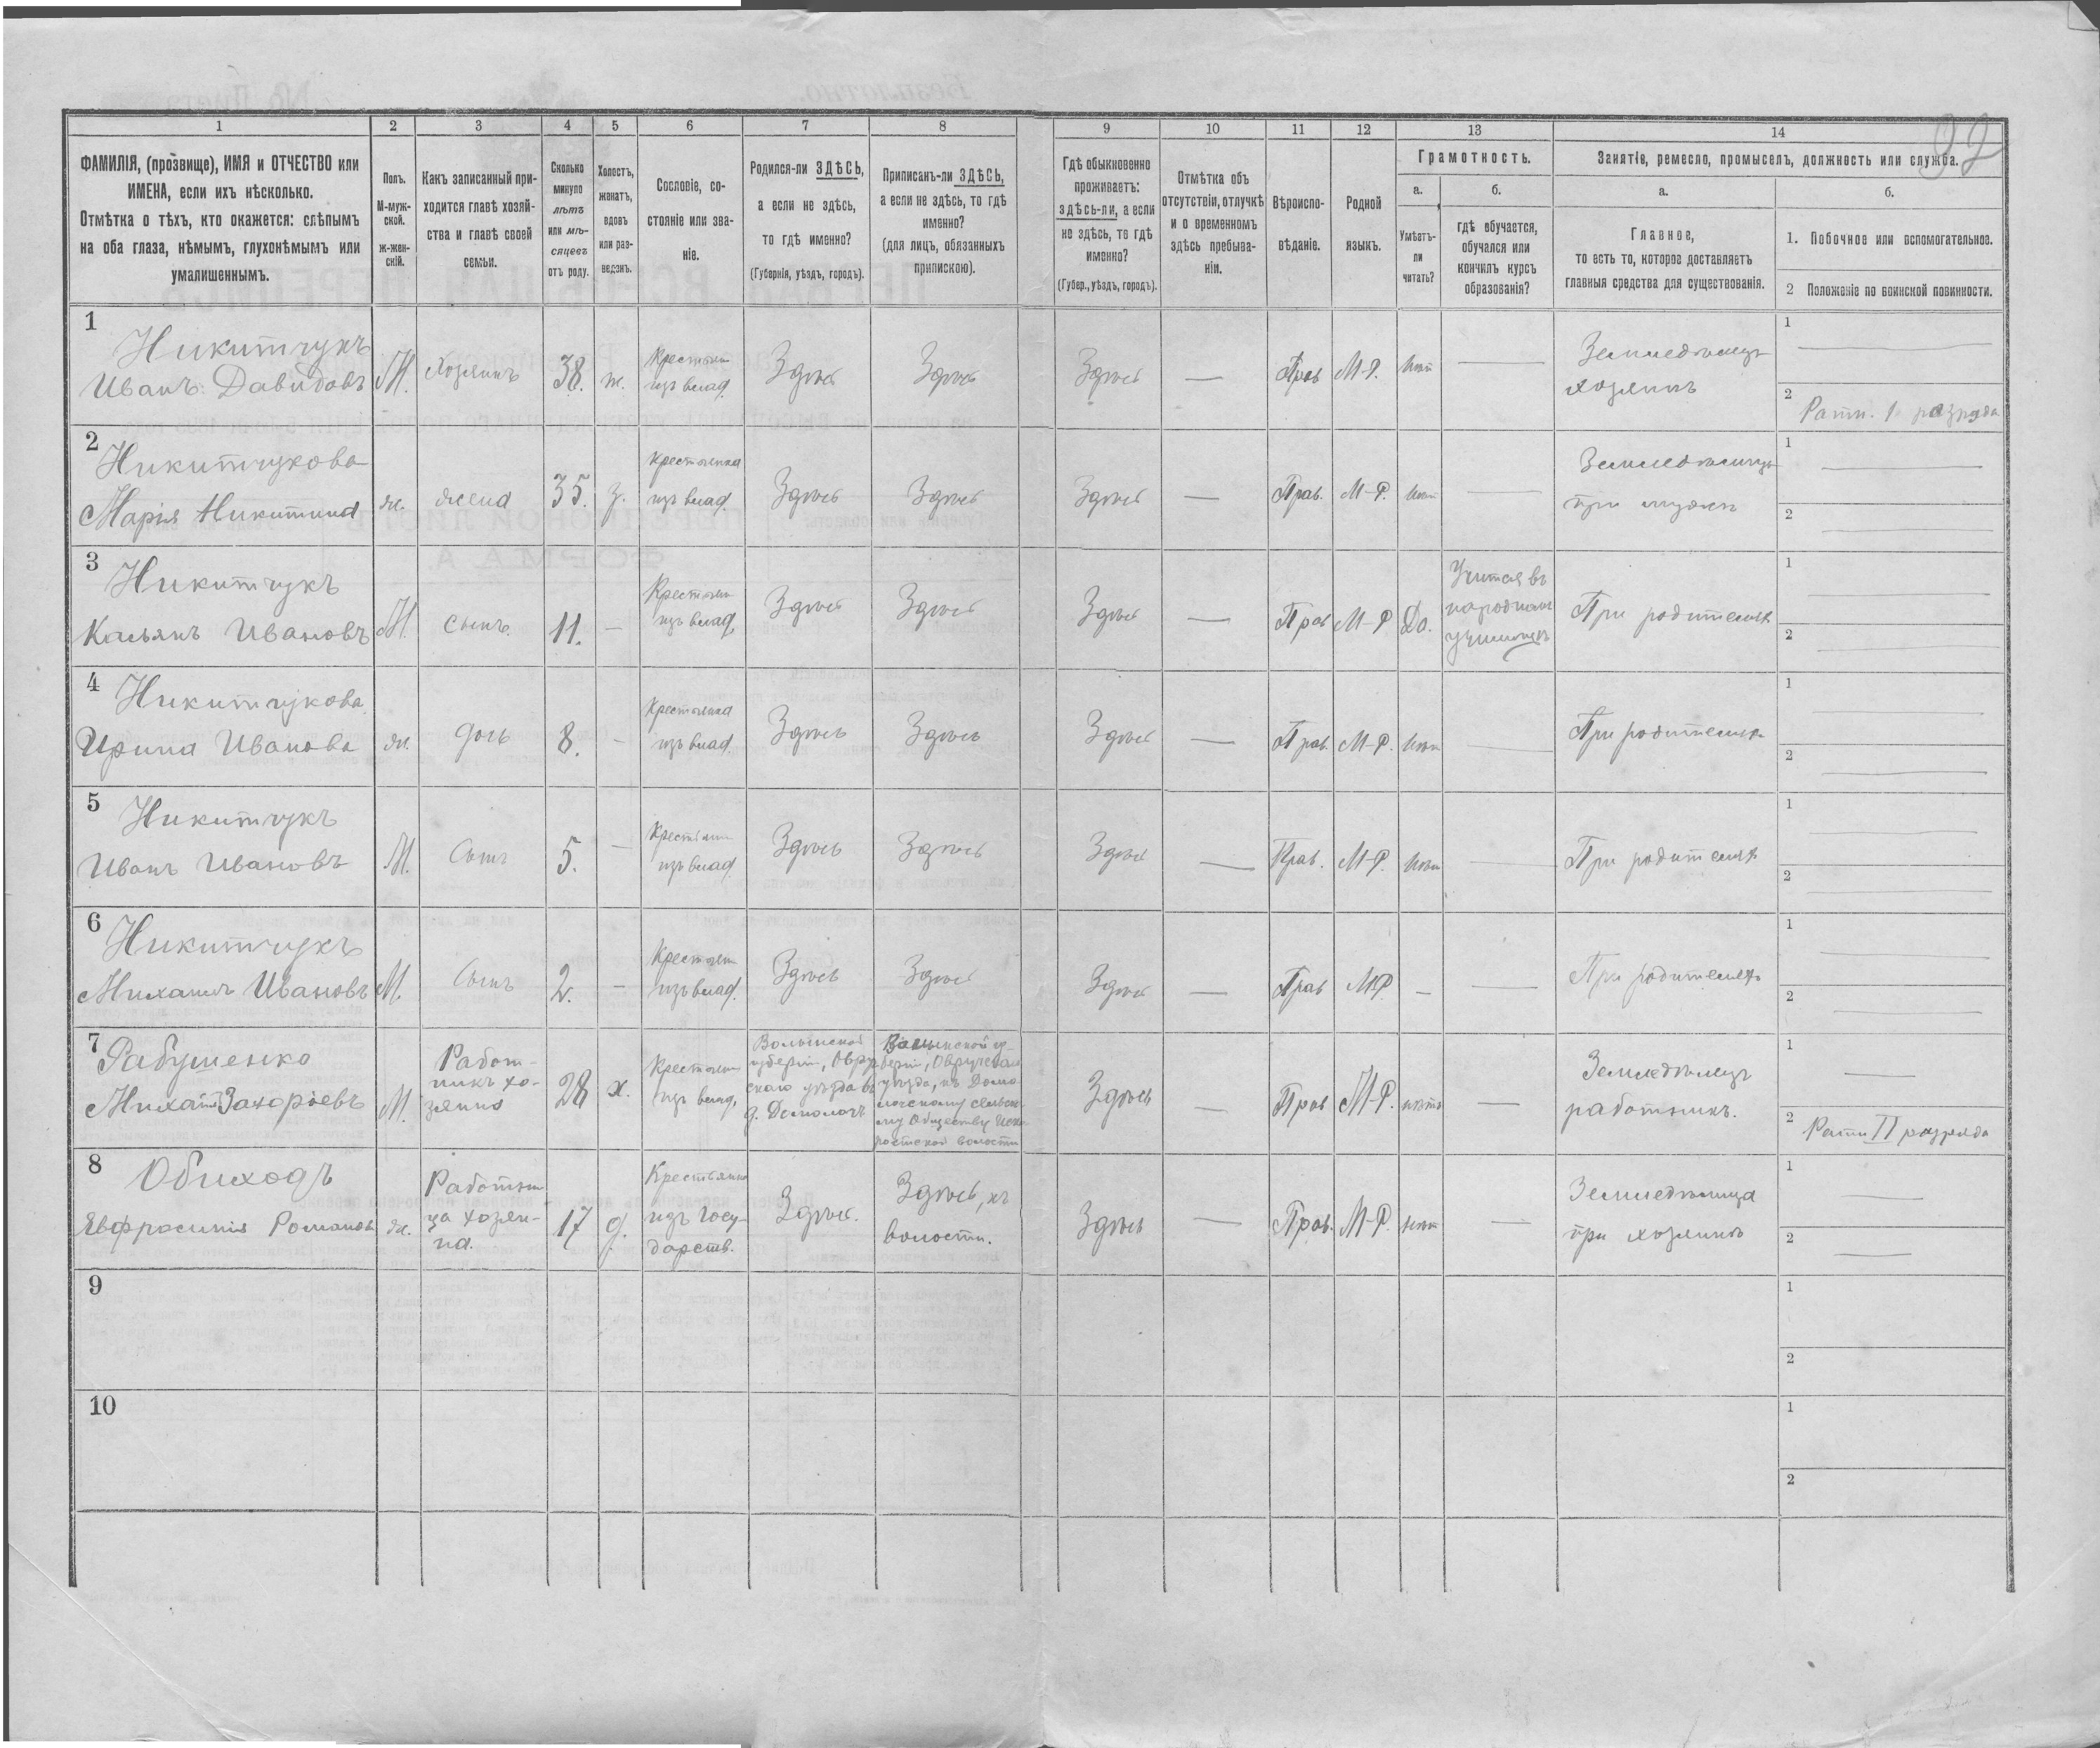 92
1 2 3 4 5 6 7 8 9 10 11 12 13 14
ФАМИЛІЯ, (прозвище), ИМЯ и ОТЧЕСТВО или
ИМЕНА, если ихъ нѣсколько.
Отмѣтка о тѣхъ, кто окажется: слѣпымъ
на оба глаза, нѣмымъ, глухонѣмымъ или
умалишеннымъ.
Полъ.
М-муж-
ской.
Ж-жен-
скій.
Какъ записанный при-
ходится главѣ хозяй-
ства и главѣ своей
семьи.
Сколько
минуло
лѣтъ
или мѣ-
сяцевъ
отъ роду.
Холостъ,
женатъ,
вдовъ
или раз-
веденъ.
Сословіе, со-
стояніе или зва-
ніе.
Родился-ли ЗДѢСЬ,
а если не здѣсь,
то гдѣ именно?
(Губернія, уѣздъ, городъ).
Приписанъ-ли ЗДѢСЬ,
а если не здѣсь, то гдѣ
именно?
(для лицъ, обязанныхъ
припискою).
Гдѣ обыкновенно
проживаетъ:
здѣсь-ли, а если
не здѣсь, то гдѣ
именно?
(Губер., уѣздъ, городъ).
Отмѣтка объ
отсутствіи, отлучкѣ
и о временномъ
здѣсь пребыва-
ніи.
Вѣроиспо-
вѣданіе.
Родной
языкъ.
Грамотность.
а. б.
Умѣетъ-
ли
читать?
гдѣ обучается,
обучался или
кончилъ курсъ
образованія?
Занятіе, ремесло, промыселъ, должность или служба.
а. б.
Главное,
то есть то, которое доставляетъ
главныя средства для существованія.
1. Побочное или вспомогательное.
2 Положеніе по воинской повинности.
1
Никитчукъ
Иванъ Давидовъ
М.
Хозяинъ
38.
ж.
Крестьян
изъ влад.
Здѣсь
Здѣсь
Здѣсь
—
Прав
М-Р.
Нѣт
—
Земледѣлецъ
хозяинъ
1 —
2 Ратн. 1 разряда
2
Никитчукова
Марія Никитина
ж.
жена
35.
з.
Крестьянка
изъ влад.
Здѣсь
Здѣсь
Здѣсь
—
Прав.
М-Р.
Нѣт
—
при мужѣ
1 —
2 —
3
Никитчукъ
Касьянъ Ивановъ
М.
Сынъ.
11.
—
Крестьян
изъ влад.
Здѣсь
Здѣсь
Здѣсь
—
Прав
М-Р
Да.
Учится въ
народномъ
училищѣ
При родителяхъ
1 —
2 —
4
Никитчукова
Ирина Иванова
ж.
дочь
8.
—
Крестьянка
изъ влад.
Здѣсь
Здѣсь
Здѣсь
—
Прав.
М-Р.
Нѣт
—
При родителяхъ
1 —
2 —
5
Никитчукъ
Иванъ Ивановъ
М.
Сынъ
5.
—
Крестьян
изъ влад.
Здѣсь
Здѣсь
Здѣсь
—
Прав.
М-Р.
Нѣт
—
При родителяхъ
1 —
2 —
6
Никитчукъ
Михаилъ Ивановъ
М.
Сынъ
2.
—
Крестьян
изъ влад.
Здѣсь
Здѣсь
Здѣсь
—
Прав
М-Р.
—
—
При родителяхъ
1 —
2 —
7
Рабушенко
Захаріевъ
М.
Работ-
никъ хо-
зяина
28
х.
Крестьян
изъ влад.
Волынской
губерніи, Овру
скаго уѣзда въ
Волынской гу-
берніи,
уѣзда, къ
Обществу
волости
Здѣсь
—
Прав
М-Р.
нѣтъ
—
Земледѣлецъ
работникъ.
1 —
2 Ратн II разряда
8
Обиходъ
Евфросинія Романов
ж.
Работни
ца хозяи-
на.
17
д.
Крестьянка
изъ госу-
дарств.
Здѣсь.
Здѣсь, къ
волости.
Здѣсь
—
Прав.
М-Р.
нѣт
—
Земледѣлица
при хозяинѣ
1 —
2 —
9
1
2
10
1
2